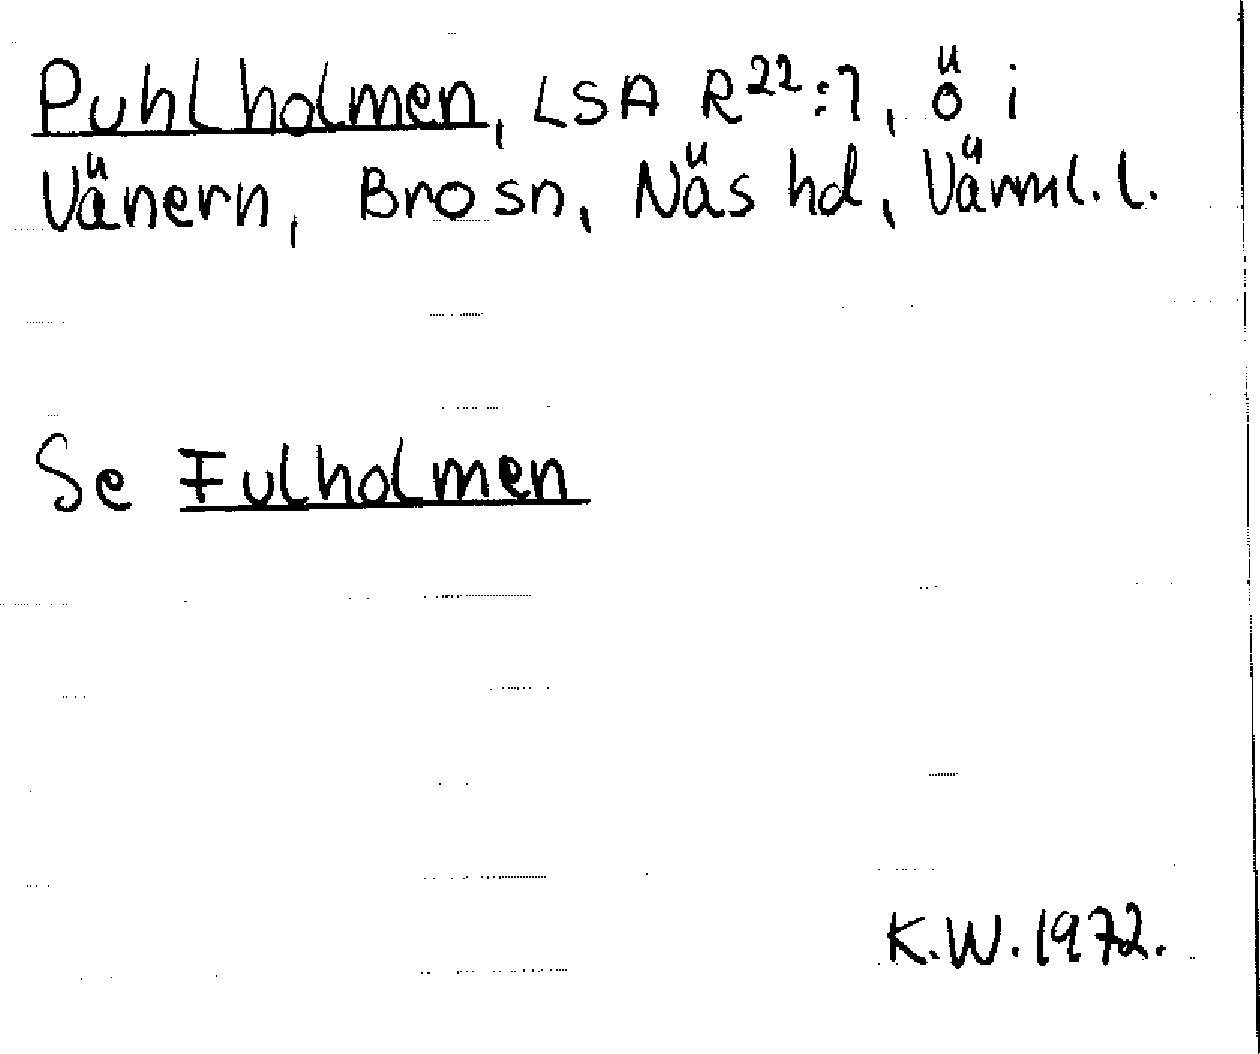 Puhlholmen, LSA R²²:7, ö i
Vänern, Bro sn, Näs hd, Värml. l.
Se Fulholmen
K.W. 1972.